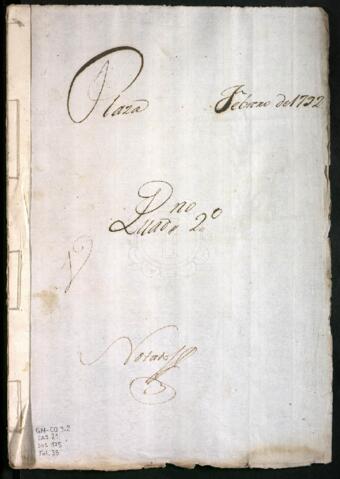 Plaza Febrero de 1792
Qno
Quad.º 2.º
Notado
GM-CO 5.2
CAJ. 21
DOC 125
Fol. 38